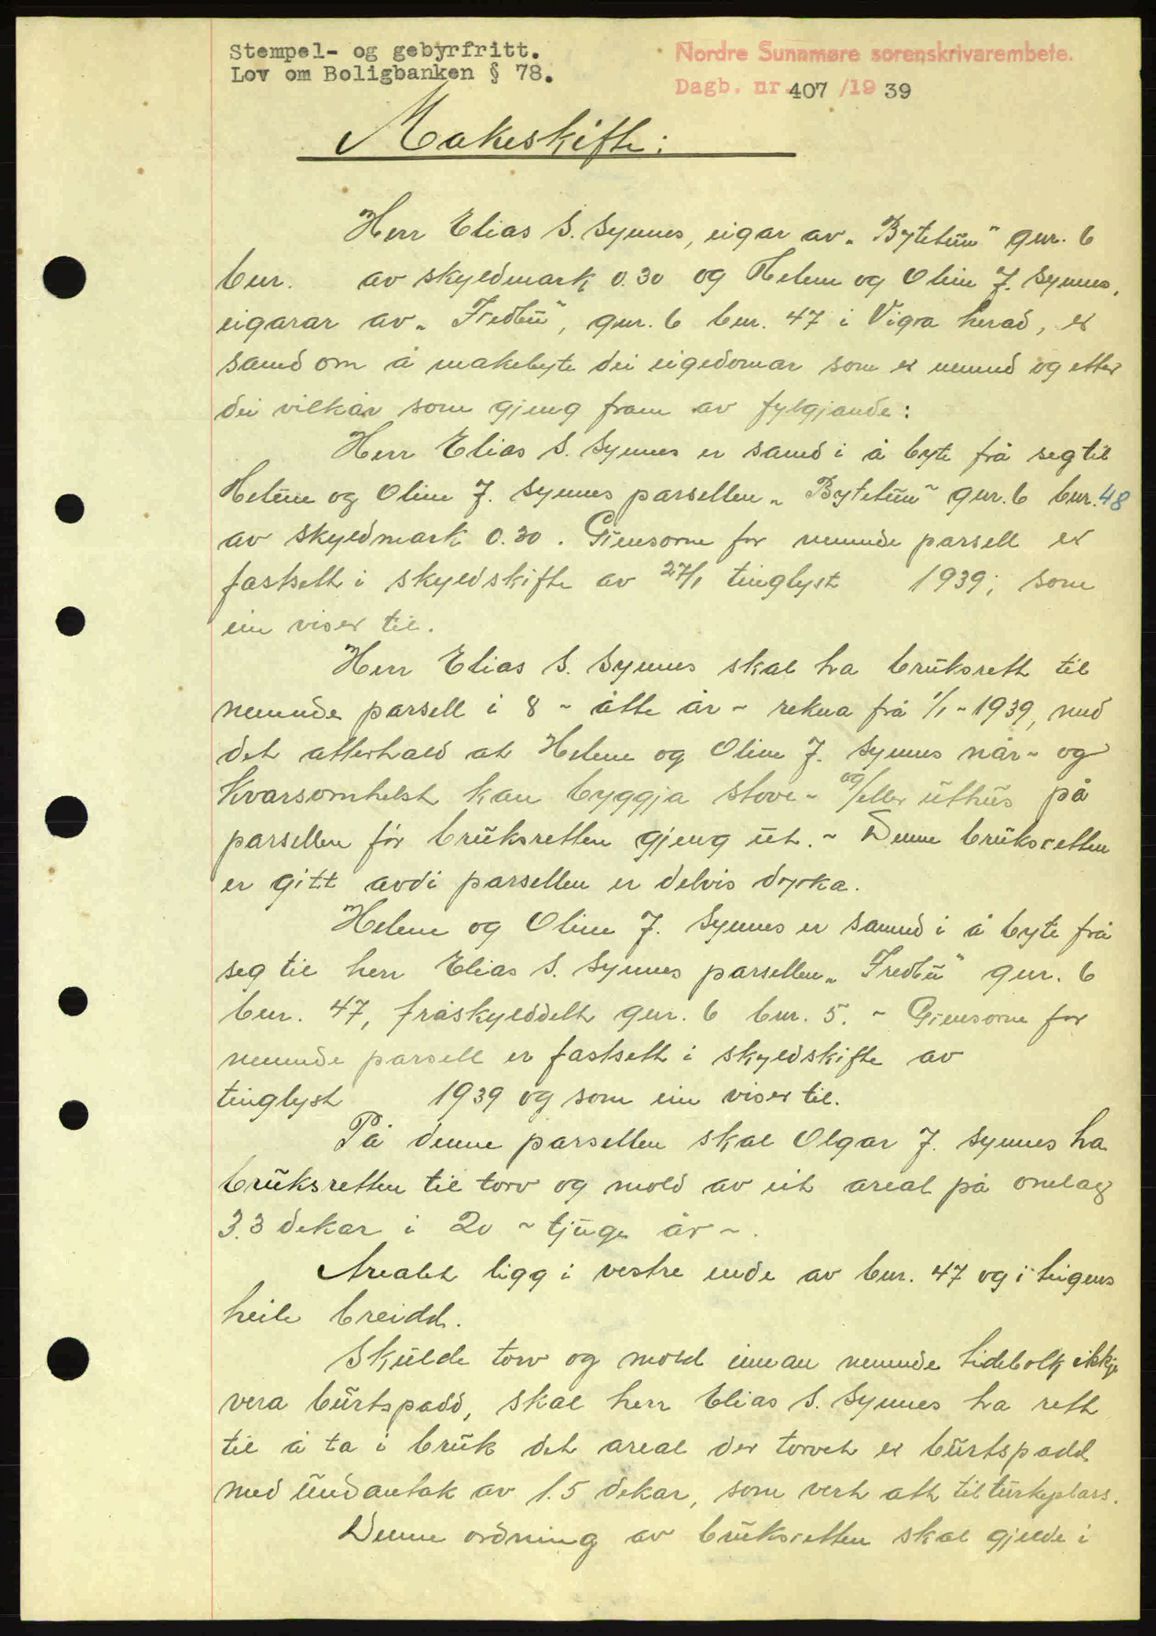 Stempel- og gebyrfritt.
Lov om Boligbanken § 78.
Nordre Sunnmøre sorenskrivarembete.
Dagb. nr. 407 /19 39
Makeskifte:
Herr Elias S. Synnes, eigar av „Bytetun“ gnr. 6
bnr. av skyldmark 0.30 og Helene og Oline J. Synnes,
eigarar av „Fredbu“, gnr. 6 bnr. 47 i Vigra herad, er
samd om å makebyte dei eigedomar som er nemnd og etter
dei vilkår som gjeng fram av fylgjande:
Herr Elias S. Synnes er samd i å byte frå seg til
Helene og Oline J. Synnes parsellen „Bytetun“ gnr. 6 bnr. 48
av skyldmark 0.30. Grensorne for nemnde parsell er
fastsett i skyldskifte av 27/1 tinglyst 1939; som
ein viser til.
Herr Elias S. Synnes skal ha bruksrett til
nemnde parsell i 8 - åtte år - rekna frå 1/1-1939, med
det atterhald at Helene og Oline J. Synnes når- og
kvarsomhelst kan byggja stove- og/eller uthus på
parsellen før bruksretten gjeng ut. - Denne bruksretten
er gitt avdi parsellen er delvis dyrka.
Helene og Oline J. Synnes er samnd i å byte frå
seg til herr Elias S. Synnes parsellen „Fredbu“ gnr. 6
bnr. 47, fråskylddelt gnr. 6 bnr. 5. - Grensorne for
nemnde parsell er fastsett i skyldskifte av
tinglyst 1939 og som ein viser til.
På denne parsellen skal Olgar J. Synnes ha
bruksretten til torv og mold av eit areal på omlag
3.3 dekar i 20 - tjuge år -.
Arealet ligg i vestre ende av bnr. 47 og i teigens
heile breidd.
Skulde torv og mold innan nemnde tidebolk ikkje
vera burtspadd, skal herr Elias S. Synnes ha rett
til å ta i bruk det areal der torvet er burtspadd
med undantak av 1.5 dekar, som vert att til turkeplass.
Denne ordning av bruksretten skal gjelde i